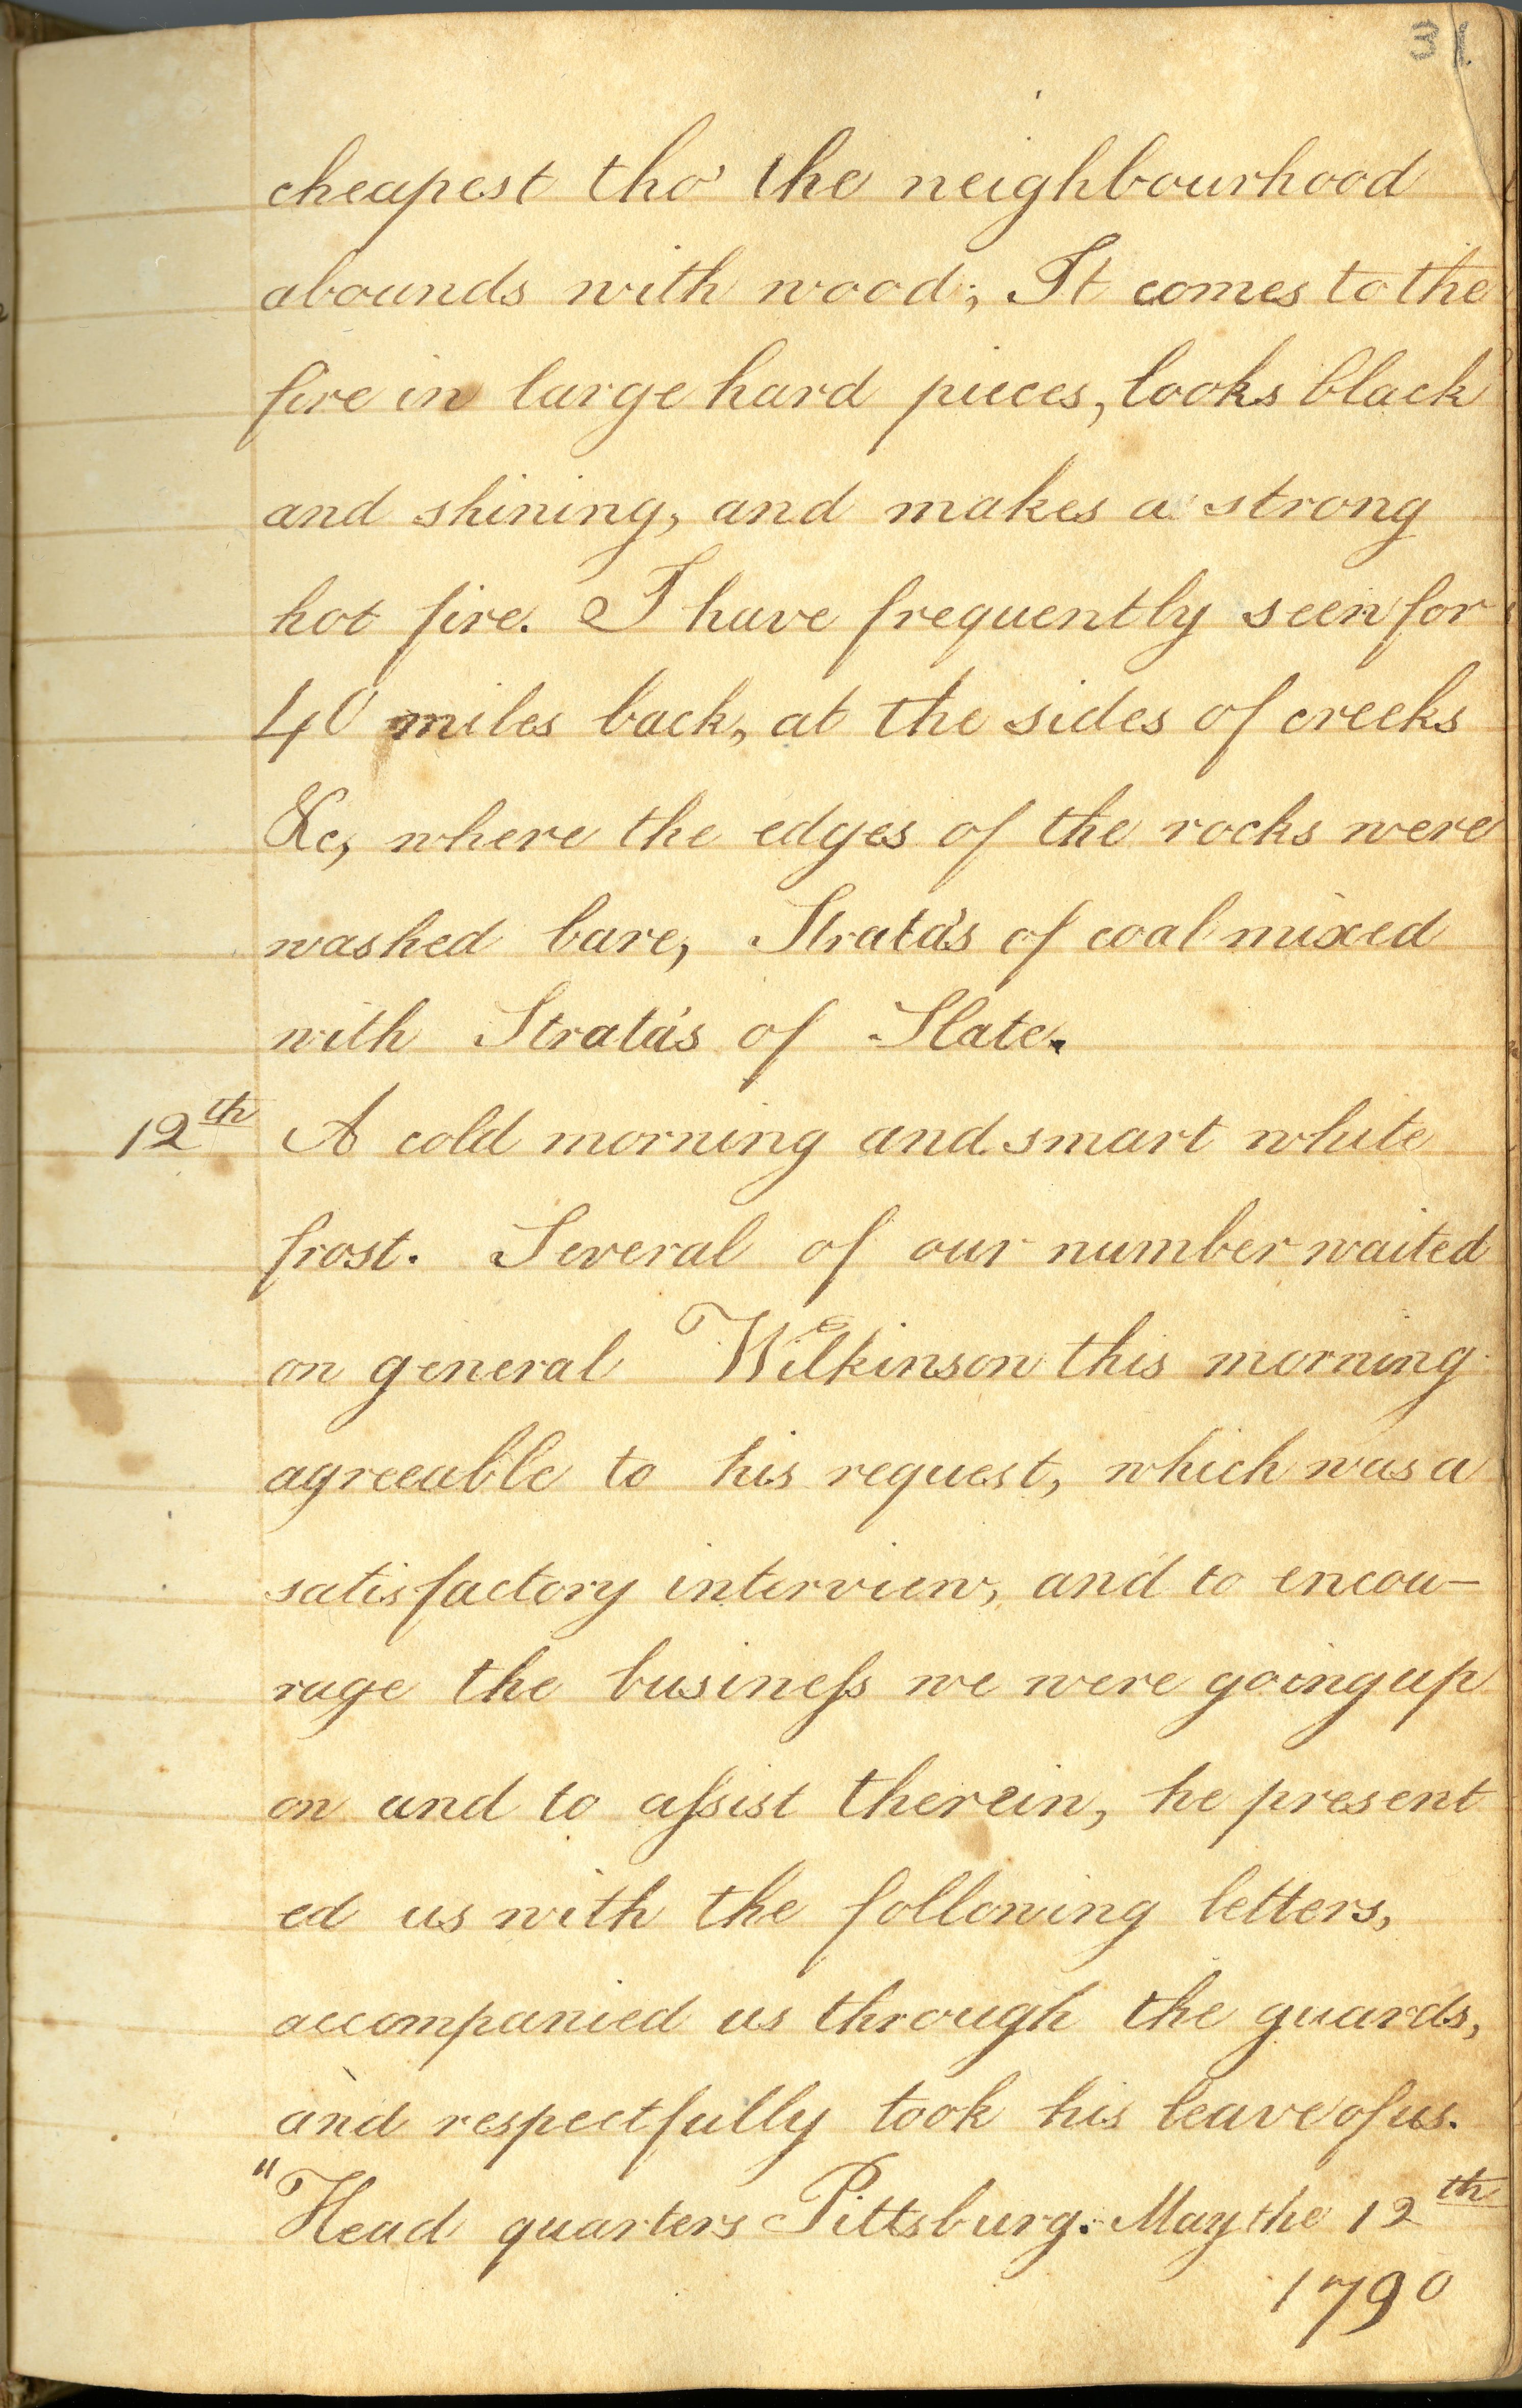 31
cheapest tho' the neighbourhood
abounds with wood; It comes to the
fire in large hard pieces, looks black
and shining, and makes a strong
hot fire. I have frequently seen for
40 miles back, at the sides of creeks
&c, where the edges of the rocks were
washed bare, Strata's of coal mixed
with Strata's of Slate.
12th A cold morning and smart white
frost. Several of our number waited
on general Wilkinson this morning
agreeable to his request, which was a
satisfactory interview, and to encou-
rage the busineſs we were going up
on and to aſsist therein, he present
ed us with the following letters,
accompanied us through the guards,
and respectfully took his leave of us.
"Head quarters Pittsburg. May the 12th
1790